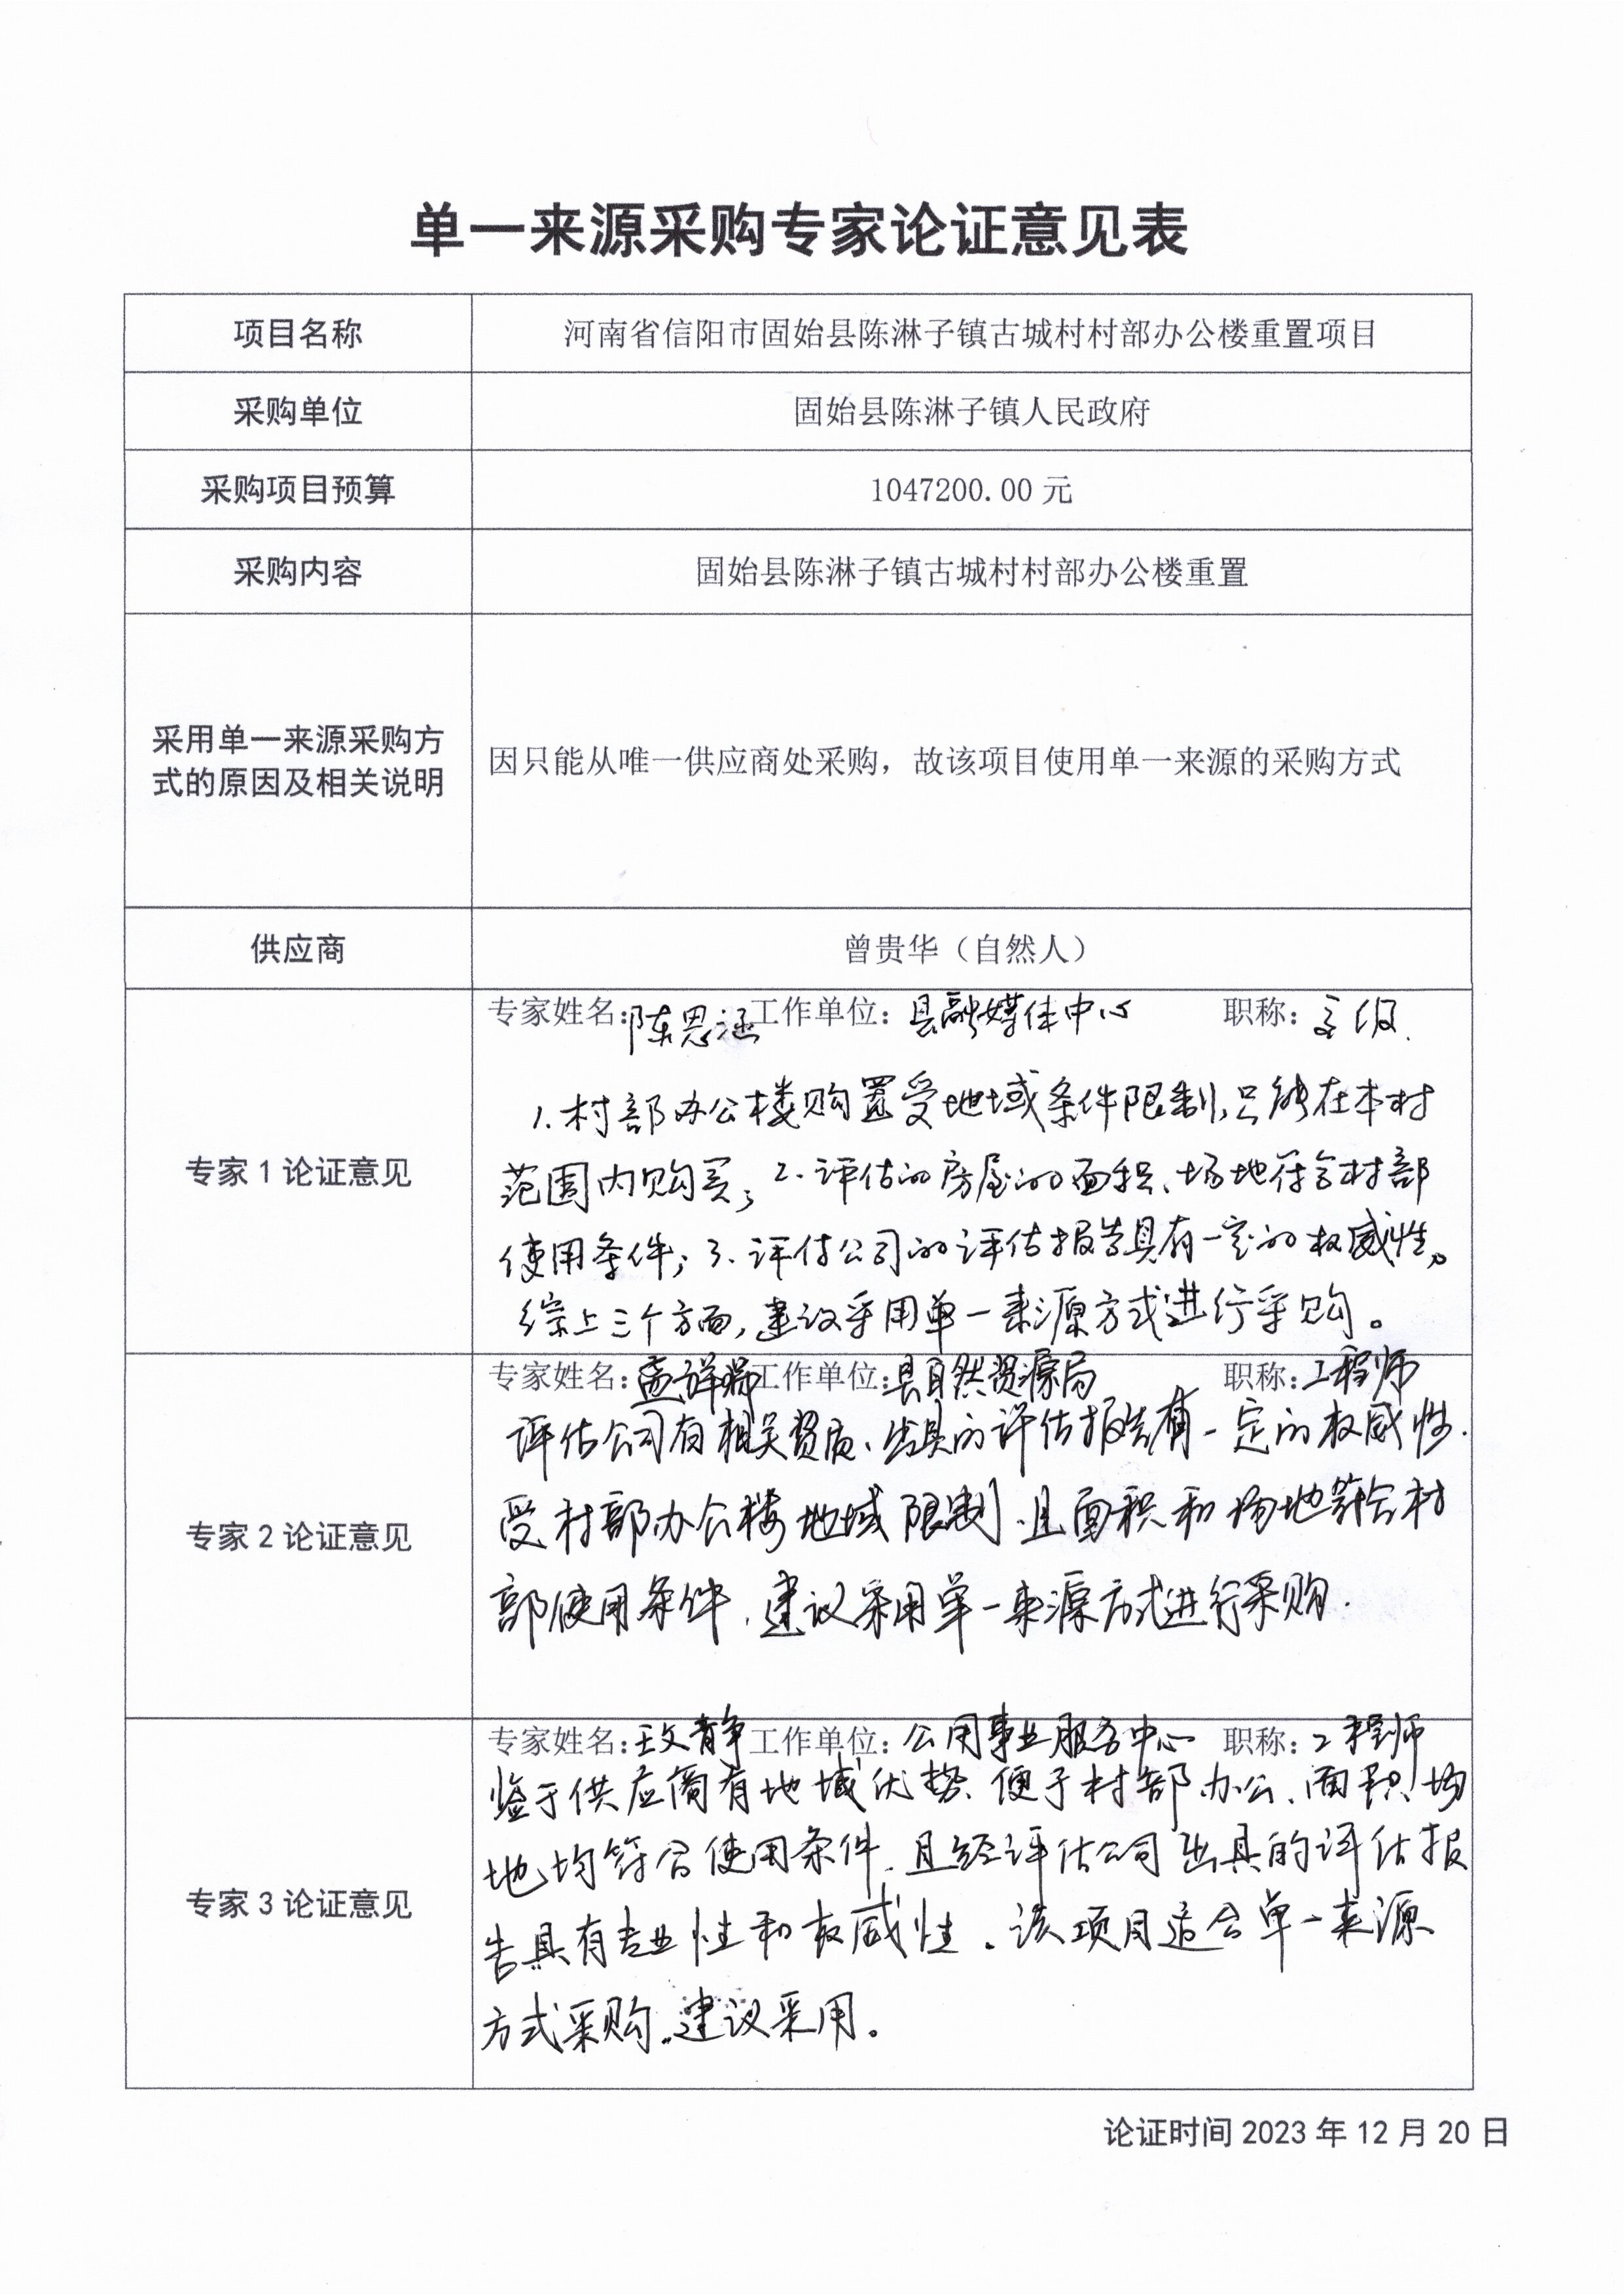 单一来源采购专家论证意见表
项目名称 河南省信阳市固始县陈淋子镇古城村村部办公楼重置项目
采购单位 固始县陈淋子镇人民政府
采购项目预算 1047200.00 元
采购内容 固始县陈淋子镇古城村村部办公楼重置
采用单一来源采购方
式的原因及相关说明
因只能从唯一供应商处采购，故该项目使用单一来源的采购方式
供应商 曾贵华（自然人）
专家 1 论证意见
专家姓名：陈思涵 工作单位：县融媒体中心 职称：
1.村部办公楼购置受地域条件限制，只能在本村
范围内购买；2.评估的房屋的面积、场地符合村部
使用条件；3.评估公司的评估报告具有一定的权威性。
综上三个方面，建议采用单一来源方式进行采购。
专家 2 论证意见
专家姓名： 工作单位：县自然资源局 职称：工程师
评估公司有相关资质、出具的评估报告有一定的权威性.
受村部办公楼地域限制.且面积和场地符合村
部使用条件.建议采用单一来源方式进行采购.
专家 3 论证意见
专家姓名：王文静 工作单位：公用事业服务中心 职称：工程师
鉴于供应商有地域优势、便于村部办公、面积、场
地均符合使用条件、且经评估公司出具的评估报
告具有专业性和权威性。该项目适合单一来源
方式采购。建议采用。
论证时间 2023 年 12 月 20 日